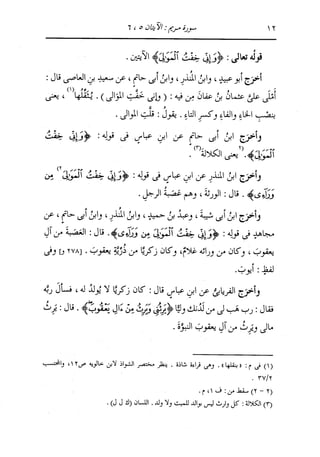 ١٢ سورة مريم : الآيتان ٥ ، ٦
قولُه تعالى : ﴿ وَإِنِّي خِفْتُ ٱلْمَوَٰلِيَ ﴾ الآيتين .
أخرَج أبو عبيدٍ ، وابنُ المنذرِ ، وابنُ أبى حاتمٍ ، عن سعيدِ بنِ العاصى قال :
أَمْلَى علىَّ عثمانُ بنُ عفانَ مِن فيه : ( وإنى خَفَّتِ الموَالى ) . يُثَقِّلُها(١) ، يعنى
بنصبِ الخاءِ والفاءِ وكسرِ التاءِ . يقولُ : قَلَّتِ الموالى .
وأخرَج ابنُ أبى حاتمٍ عن ابنِ عباسٍ فى قولِه : ﴿ وَإِنِّي خِفْتُ
ٱلْمَوَٰلِيَ ﴾ . (٢) يعنى الكلالةَ(٣) .
وأخرَج ابنُ المنذرِ عن ابنِ عباسٍ فى قولِه : ﴿ وَإِنِّي خِفْتُ ٱلْمَوَٰلِيَ(٢) مِن
وَرَآءِى ﴾ . قال : الورثةَ ، وهم عَصَبةُ الرجلِ .
وأخرَج ابنُ أبى شيبةَ ، وعبدُ بنُ حميدٍ ، وابنُ المنذرِ ، وابنُ أبى حاتمٍ ، عن
مجاهدٍ فى قولِه : ﴿ وَإِنِّي خِفْتُ ٱلْمَوَٰلِيَ مِن وَرَآءِى ﴾ . قال : العَصَبةَ مِن آلِ
يعقوبَ ، وكان مِن ورائِه غلامٌ ، وكان زكريَّا مِن ذُرِّيَّةِ يعقوبَ . [٢٧٨ و] وفى
لفظٍ : أيوبَ .
وأخرَج الفريابىُّ عن ابنِ عباسٍ قال : كان زكريَّا لا يُولَدُ له ، فسأَل ربَّه
فقال : ربِّ هَب لى من لدنك وليًّا ﴿ يَرِثُنِى وَيَرِثُ مِنْ ءَالِ يَعْقُوبَ ﴾ . قال : يَرِثُ
مالى ويَرِثُ من آلِ يعقوبَ النبوَّةَ .
(١) فى م : « بنقلها » . وهى قراءة شاذة . ينظر مختصر الشواذ لابن خالويه ص١٢ ، والمحتسب
٣٧/٢ .
(٢ - ٢) سقط من : ف ١ ، م .
(٣) الكلالة : كل وارث ليس بوالد للميت ولا ولد . اللسان ( ك ل ل ) .